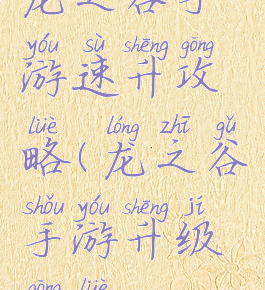 龙之谷手
yóu sù shēng gōng
游速升攻
lüè lóng zhī gǔ
略(龙之谷
shǒu yóu shēng jí
手游升级
gōng lüè